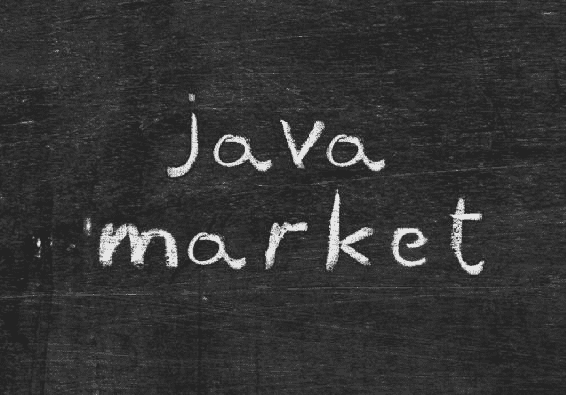 java
market